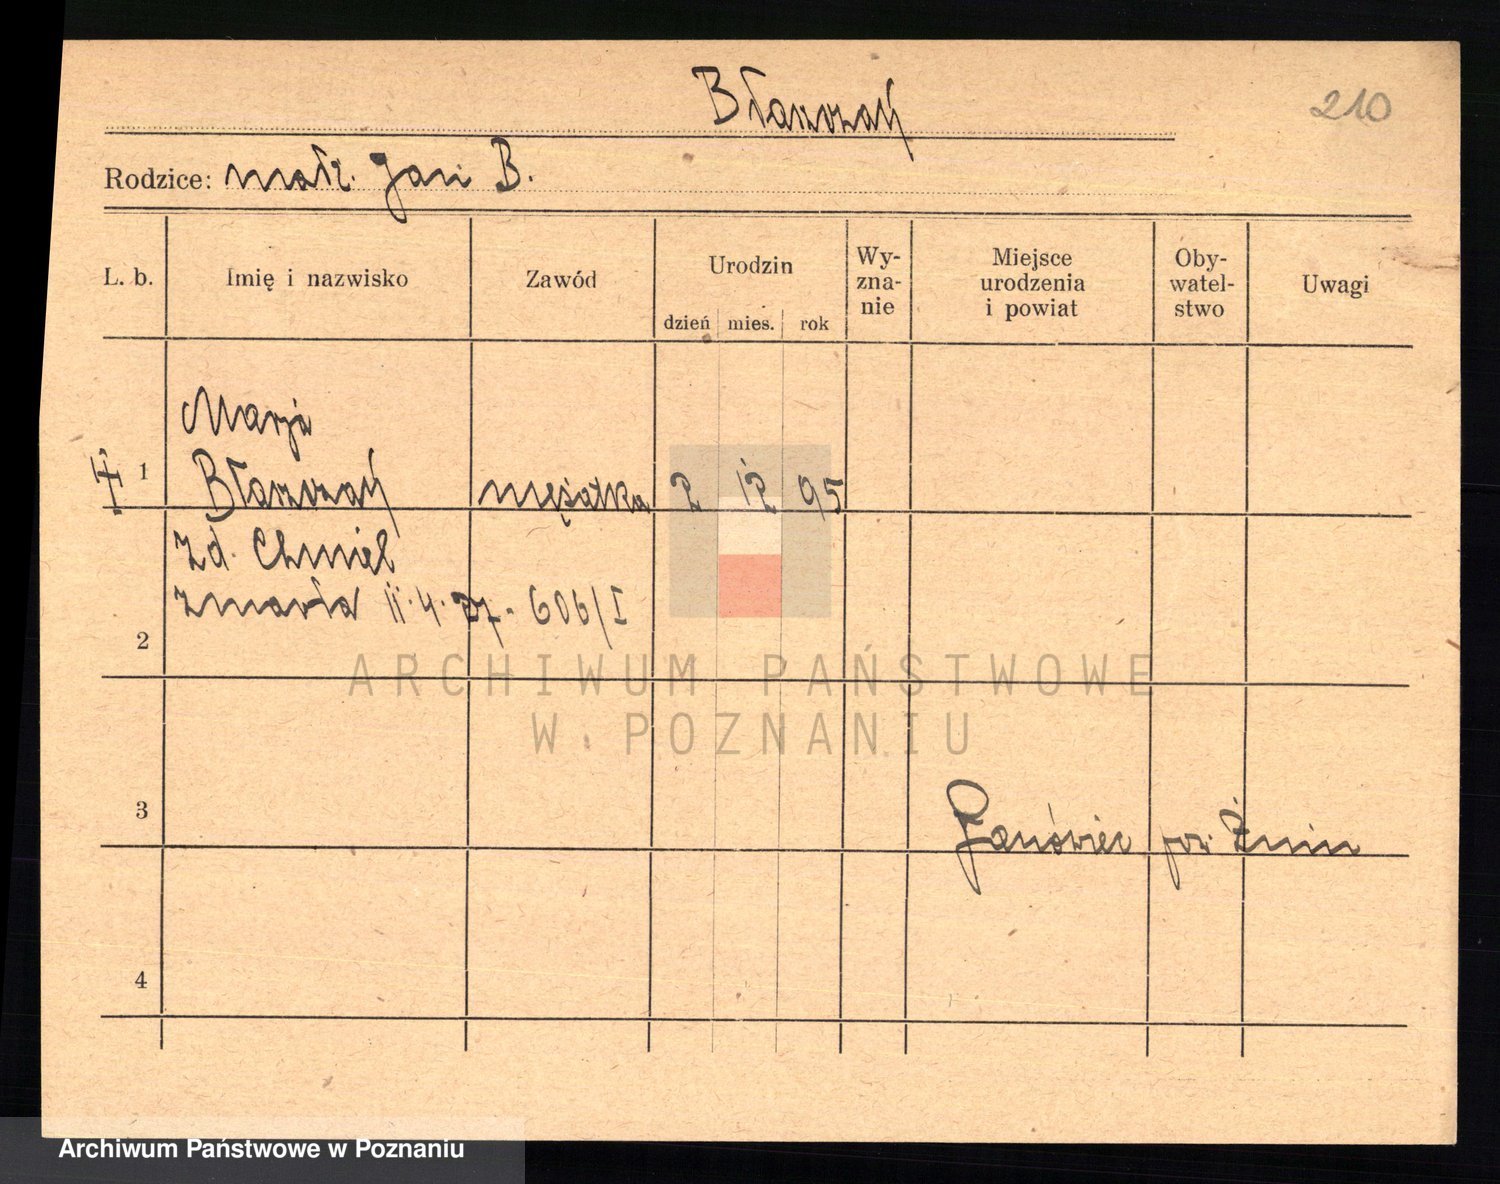 Błaszzak
210
Rodzice: małż. Jan B.
L. b.
Imię i nazwisko
Zawód
Urodzin
dzień mies. rok
Wy-
zna-
nie
Miejsce
urodzenia
i powiat
Oby-
watel-
stwo
Uwagi
Marja
1 mężatka 2 12 95
zd. Chmiel
zmarła 11.4.37. 606/I
2
ARCHIWUM PAŃSTWOWE
W POZNANIU
3
Janówiec pow. Żnin
4
Archiwum Państwowe w Poznaniu